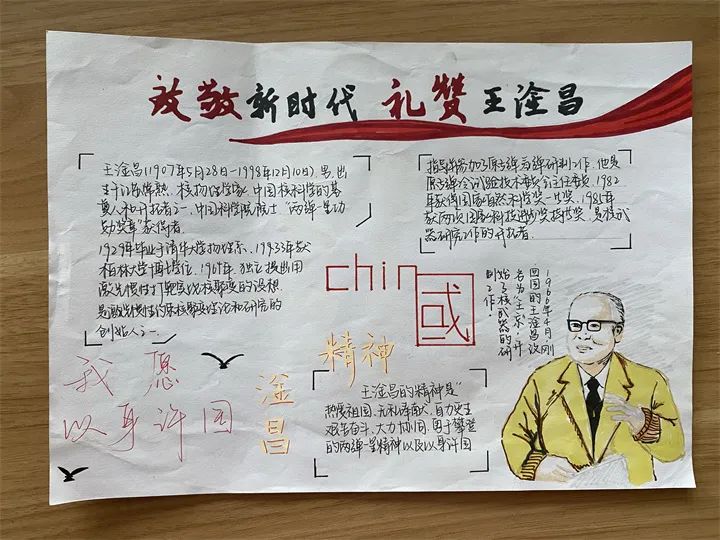 致敬新时代 礼赞王淦昌
王淦昌(1907年5月28日-1998年12月10日)男,出
生于江苏常熟,核物理学家,中国核科学的奠
基人和开拓者之一,中国科学院院士"两弹一星功
勋奖章"获得者。
1929年毕业于清华大学物理系、1933年获
柏林大学博士学位。1964年,独立提出用
激光惯性
创始人之一。
指导并参加了原子弹、氢弹研制工作。他是
1982
年获得国家自然科学奖一等奖。1985年
获两次国家科技进步奖特等奖,是核武
器研究工作的开拓者。
china国
1966年4月刚
回国的王淦昌改
名为"王京",开
始了核武器的研
制工作!
我愿
以身许国
淦昌
精神
王淦昌的精神是"
热爱祖国、无私奉献、自力更生
艰苦奋斗、大力协同、勇于攀登
的两弹一星精神以及以身许国